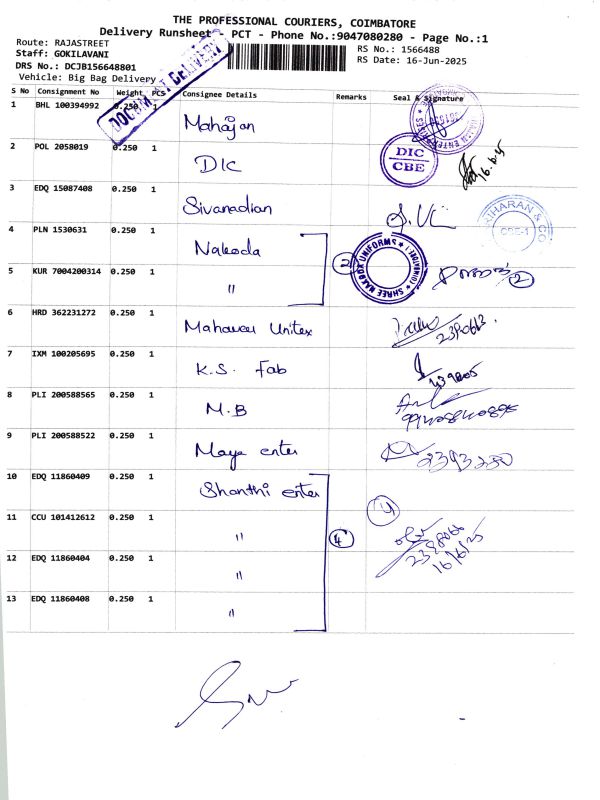 THE PROFESSIONAL COURIERS, COIMBATORE
Delivery Runsheet - PCT - Phone No.:9047080280 - Page No.:1
Route: RAJASTREET
Staff: GOKILAVANI
DRS No.: DCJB156648801
Vehicle: Big Bag Delivery
RS No.: 1566488
RS Date: 16-Jun-2025
DOCUMENT DELIVERY
S No Consignment No Weight PCS Consignee Details Remarks Seal & Signature
1 BHL 100394992 0.250 1 Mahajan
2 POL 2058019 0.250 1 DIC DIC CBE 16.6.25
3 EDQ 15087408 0.250 1 Sivanadian
HARIHARAN & CO CBE-1
4 PLN 1530631 0.250 1 Nakoda
5 KUR 7004200314 0.250 1 "
2 SHREE NAKODX UNIFORMS 2
6 HRD 362231272 0.250 1 Mahaveer Unitex
7 IXM 100205695 0.250 1 K.S. Fab
8 PLI 200588565 0.250 1 M.B
9 PLI 200588522 0.250 1 Maya enter 2393250
10 EDQ 11860409 0.250 1 Shanthi enter
11 CCU 101412612 0.250 1 " 4 4
12 EDQ 11860404 0.250 1 " 16/6/25
13 EDQ 11860408 0.250 1 "